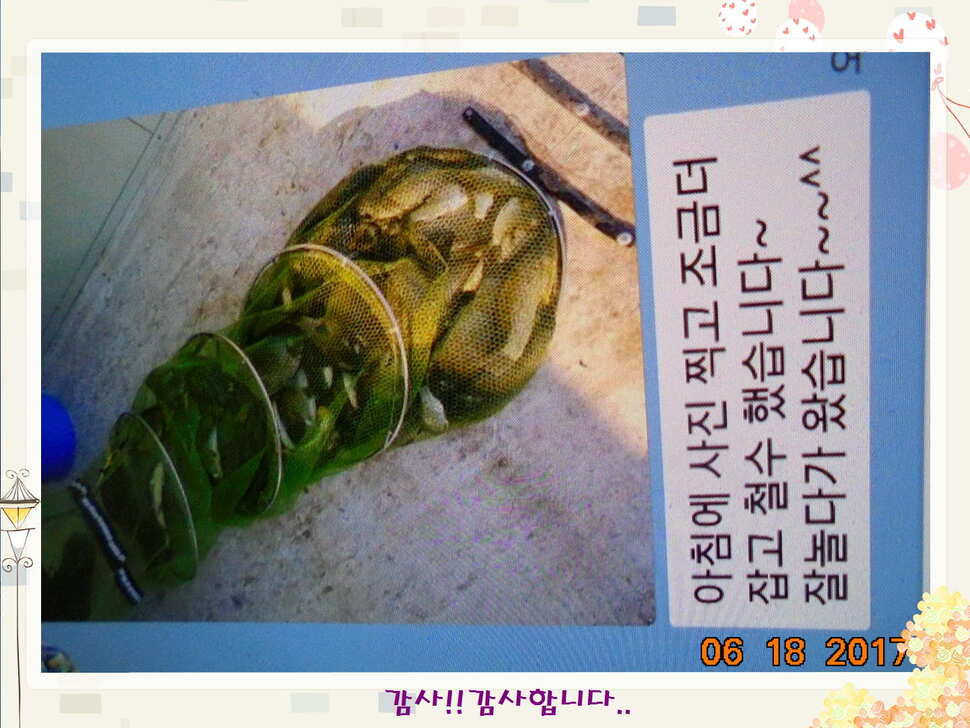 아침에 사진 찍고 조금더
잡고 철수 했습니다~
잘놀다가 왔습니다~~^^
06 18 2017
감사!!감사합니다..